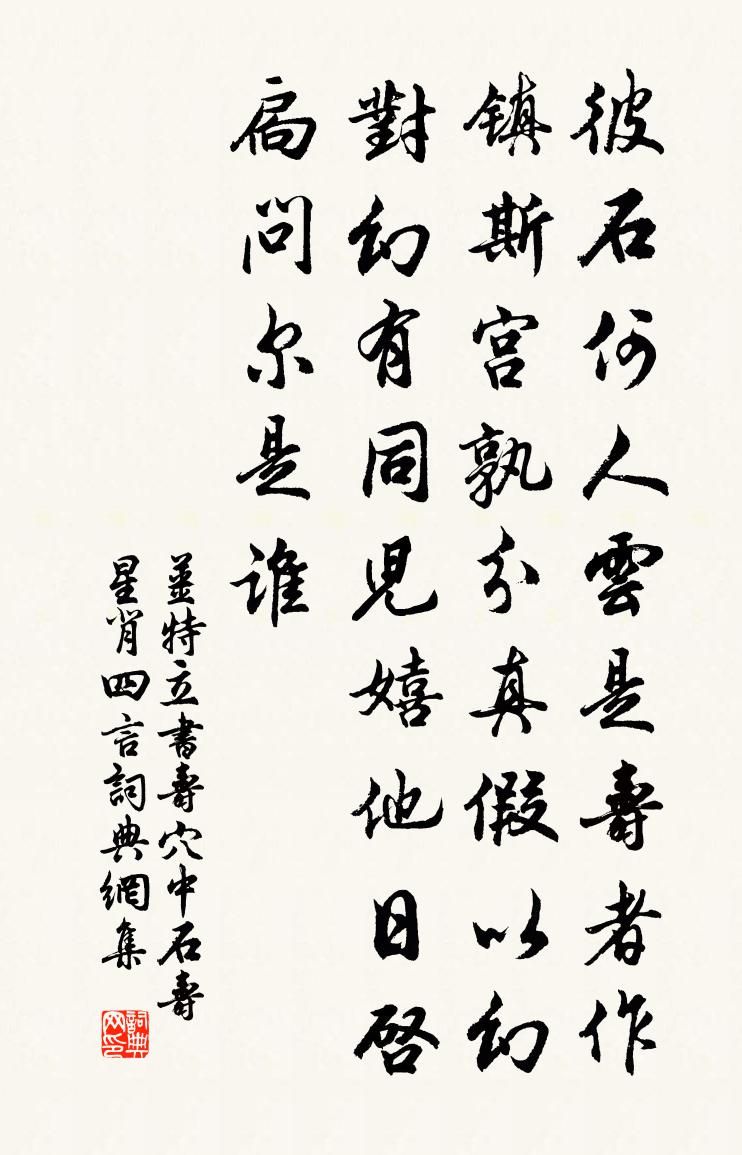 彼石何人雲是壽者作
镇斯宫孰分真假以幻
對幻有同兒嬉他日啓
扃問尔是谁
姜特立書壽穴中石壽
星肖四言詞典網集
詞典网印